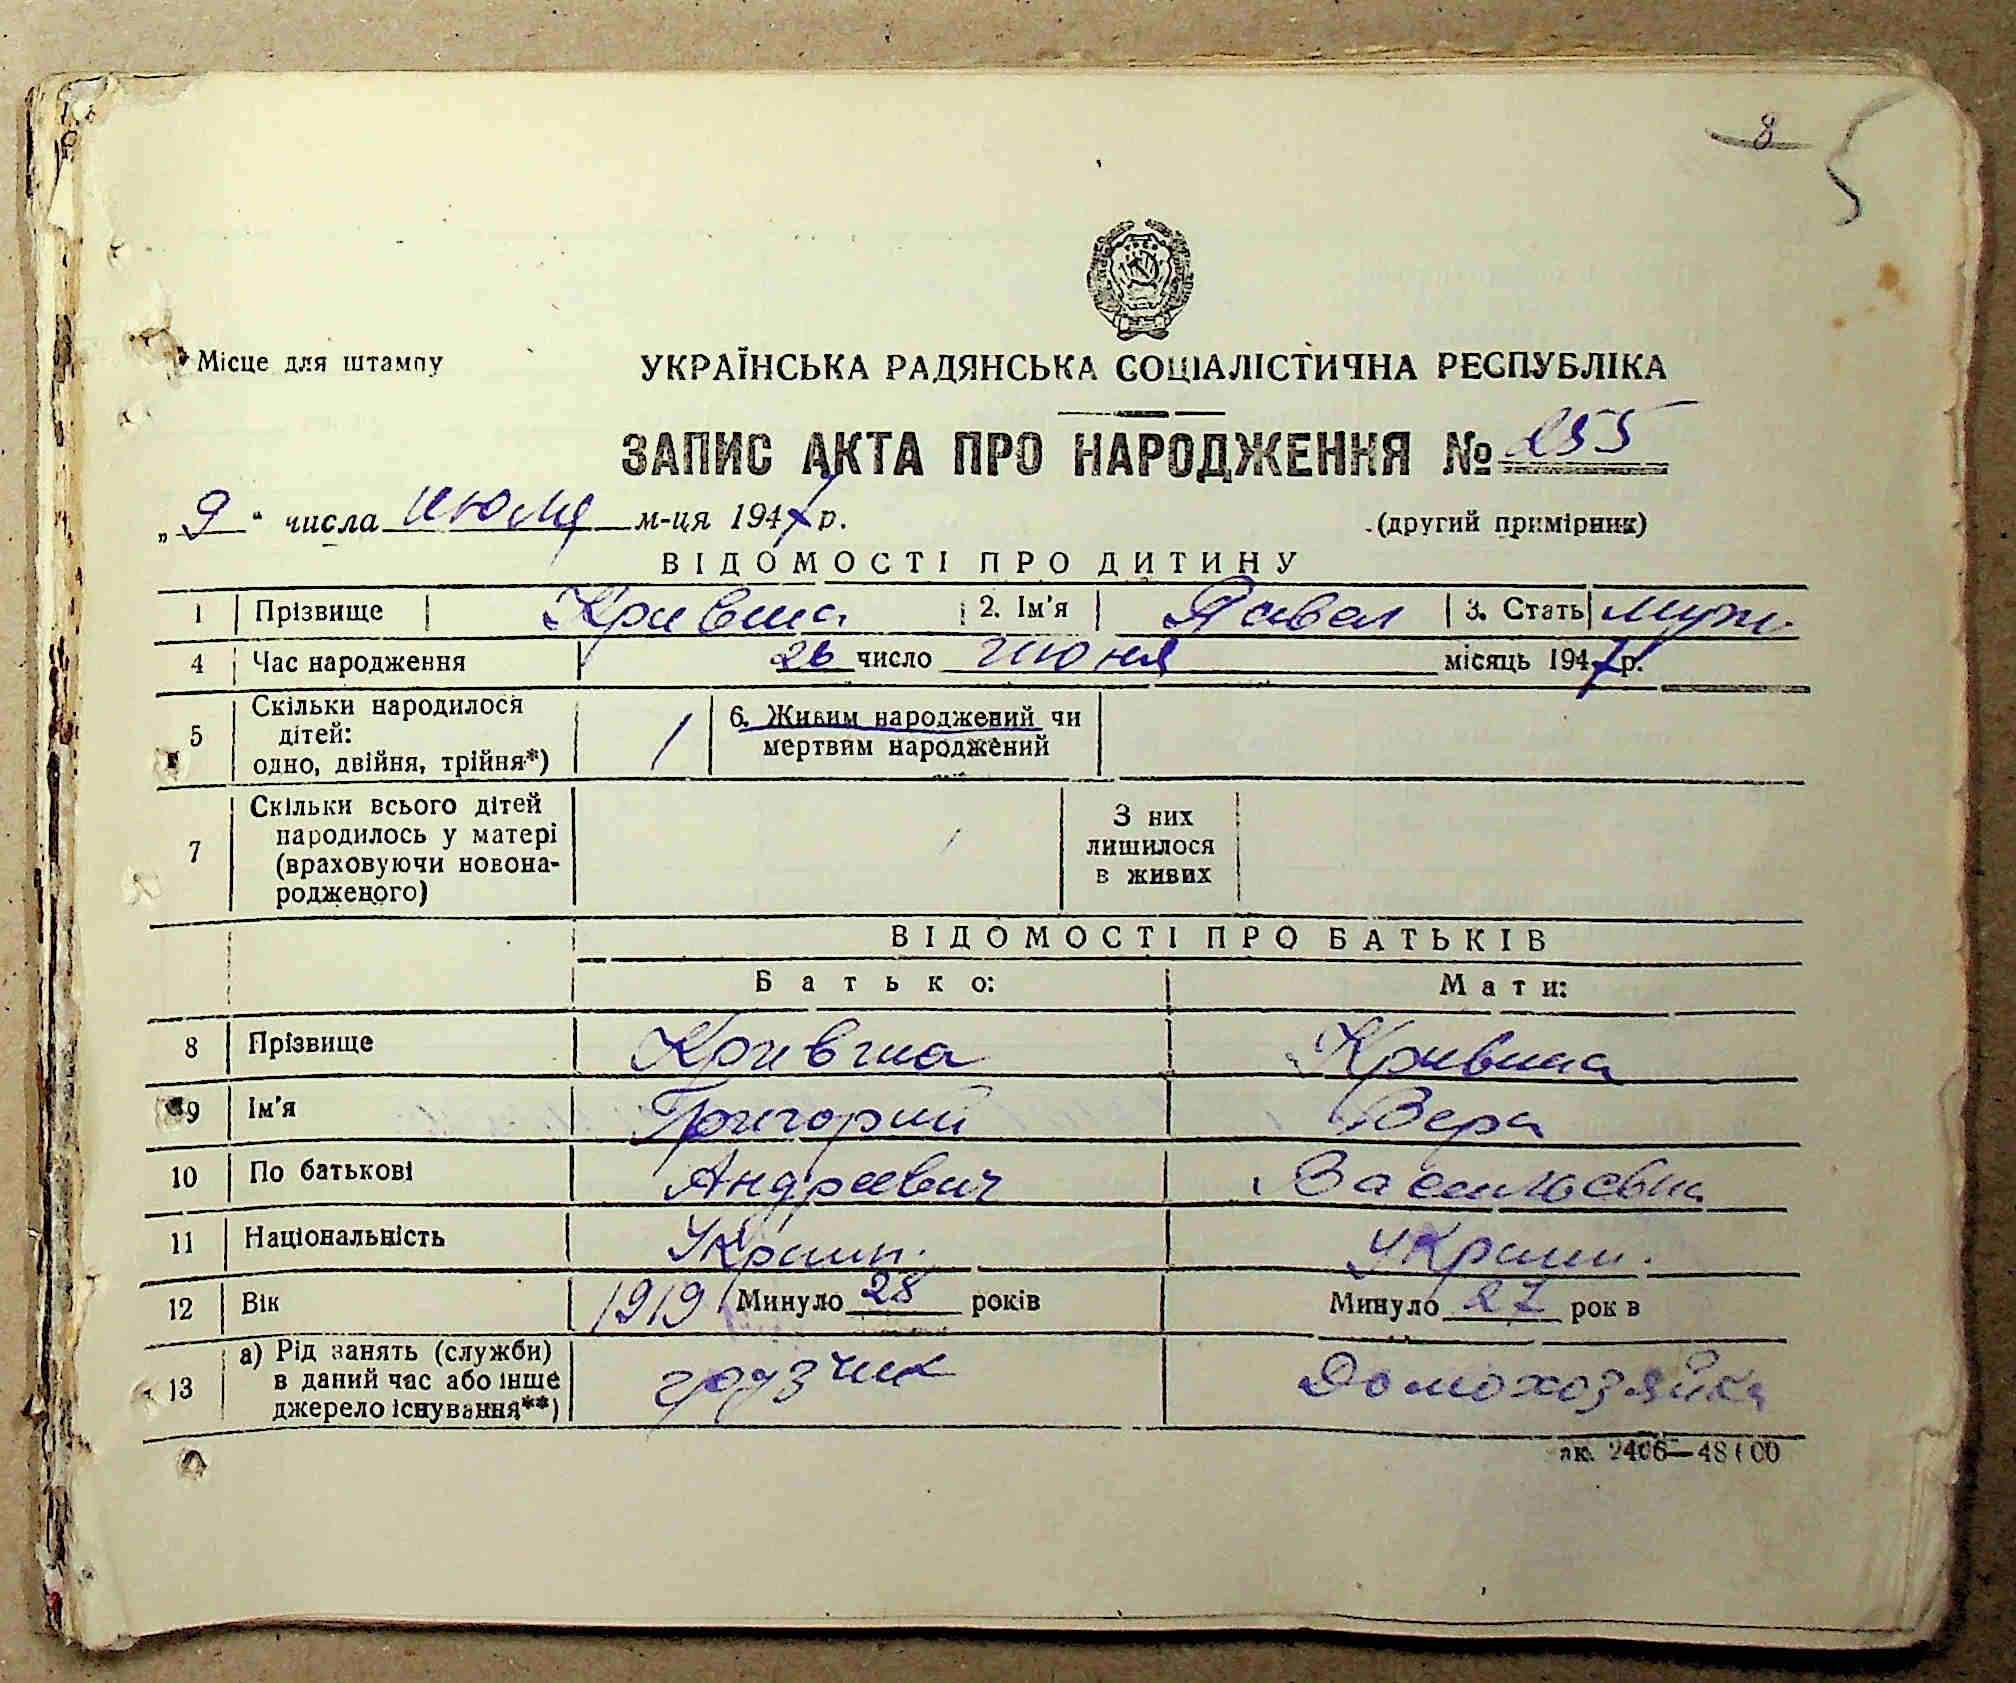 8
Місце для штампу
УКРАЇНСЬКА РАДЯНСЬКА СОЦІАЛІСТИЧНА РЕСПУБЛІКА
ЗАПИС АКТА ПРО НАРОДЖЕННЯ № 255
„9“ числа июля м-ця 1947 р. (другий примірник)
ВІДОМОСТІ ПРО ДИТИНУ
1 Прізвище Кривша 2. Ім'я Павел 3. Стать муж.
4 Час народження 26 число июня місяць 1947 р.
5 Скільки народилося дітей: одно, двійня, трійня*) 1 6. Живим народжений чи мертвим народжений
7 Скільки всього дітей народилось у матері (враховуючи новона-родженого) З них лишилося в живих
ВІДОМОСТІ ПРО БАТЬКІВ
Батько: Мати:
8 Прізвище Кривша Кривша
9 Ім'я Григорий Вера
10 По батькові Андреевич Васильевна
11 Національність Украин. Украин.
12 Вік 1919 Минуло 28 років Минуло 27 рок в
13 а) Рід занять (служби) в даний час або інше джерело існування**) грузчик Домохозяйка